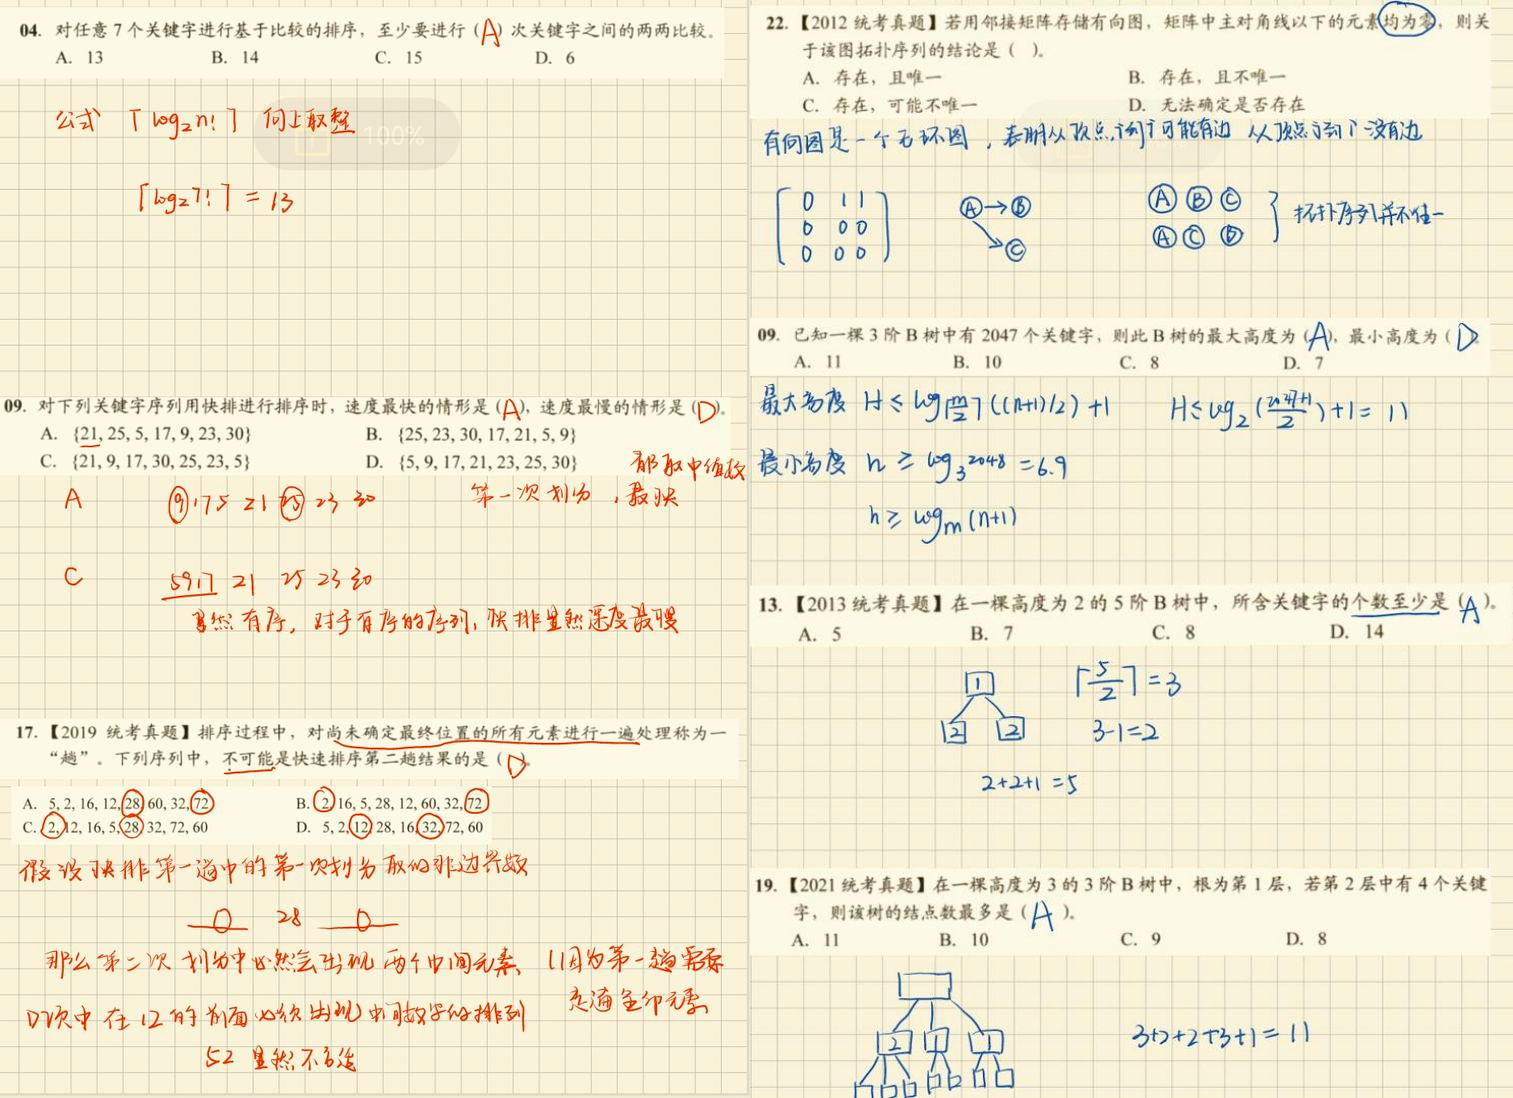 04. 对任意 7 个关键字进行基于比较的排序，至少要进行（A）次关键字之间的两两比较。
A. 13 B. 14 C. 15 D. 6
公式 ⌈log₂n!⌉ 向上取整
100%
⌈log₂7!⌉ = 13
09. 对下列关键字序列用快排进行排序时，速度最快的情形是（A），速度最慢的情形是（D）。
A. {21, 25, 5, 17, 9, 23, 30} B. {25, 23, 30, 17, 21, 5, 9}
C. {21, 9, 17, 30, 25, 23, 5} D. {5, 9, 17, 21, 23, 25, 30}
都取中值数
A 9 17 5 21 25 23 30 第一次划分，最快
C 5 9 17 21 25 23 30
显然有序，对于有序的序列，快排显然深度最慢
17.【2019 统考真题】排序过程中，对尚未确定最终位置的所有元素进行一遍处理称为一
“趟”。下列序列中，不可能是快速排序第二趟结果的是（D）。
A. 5, 2, 16, 12, 28, 60, 32, 72 B. 2, 16, 5, 28, 12, 60, 32, 72
C. 2, 12, 16, 5, 28, 32, 72, 60 D. 5, 2, 12, 28, 16, 32, 72, 60
假设快排第一趟中的第一次划分取的非边界数
28
那么第二次划分中必然会出现两个中间元素（因为第一趟需要
走遍全部元素
D项中在12的前面必须出现中间数字的排列
52 显然不合适
22.【2012 统考真题】若用邻接矩阵存储有向图，矩阵中主对角线以下的元素均为零，则关
于该图拓扑序列的结论是（ ）。
A. 存在，且唯一 B. 存在，且不唯一
C. 存在，可能不唯一 D. 无法确定是否存在
有向图是一个无环图，表明从顶点i到j可能有边 从顶点j到i没有边
0 1 1 A → B A B C
0 0 0 拓扑序列并不唯一
0 0 0 C A C B
09. 已知一棵 3 阶 B 树中有 2047 个关键字，则此 B 树的最大高度为（A），最小高度为（D
A. 11 B. 10 C. 8 D. 7
最大高度 H ≤ log⌈m/2⌉((n+1)/2)+1 H ≤ log₂(2047+1/2)+1 = 11
最小高度 h ≥ log₃2048 = 6.9
h ≥ logm(n+1)
13.【2013 统考真题】在一棵高度为 2 的 5 阶 B 树中，所含关键字的个数至少是（A）。
A. 5 B. 7 C. 8 D. 14
1 ⌈5/2⌉ = 3
2 2 3-1=2
2+2+1=5
19.【2021 统考真题】在一棵高度为 3 的 3 阶 B 树中，根为第 1 层，若第 2 层中有 4 个关键
字，则该树的结点数最多是（A）。
A. 11 B. 10 C. 9 D. 8
2 1 1 3+2+2+3+1=11